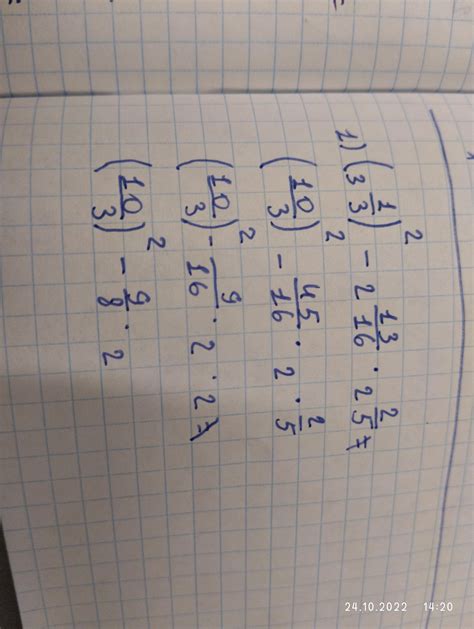 1) (3 1/3)² - 2 13/16 · 2 2/5 =
(10/3)² - 45/16 · 2 · 2/5
(10/3)² - 9/16 · 2 · 2 =
(10/3)² - 9/8 · 2
24.10.2022 14:20